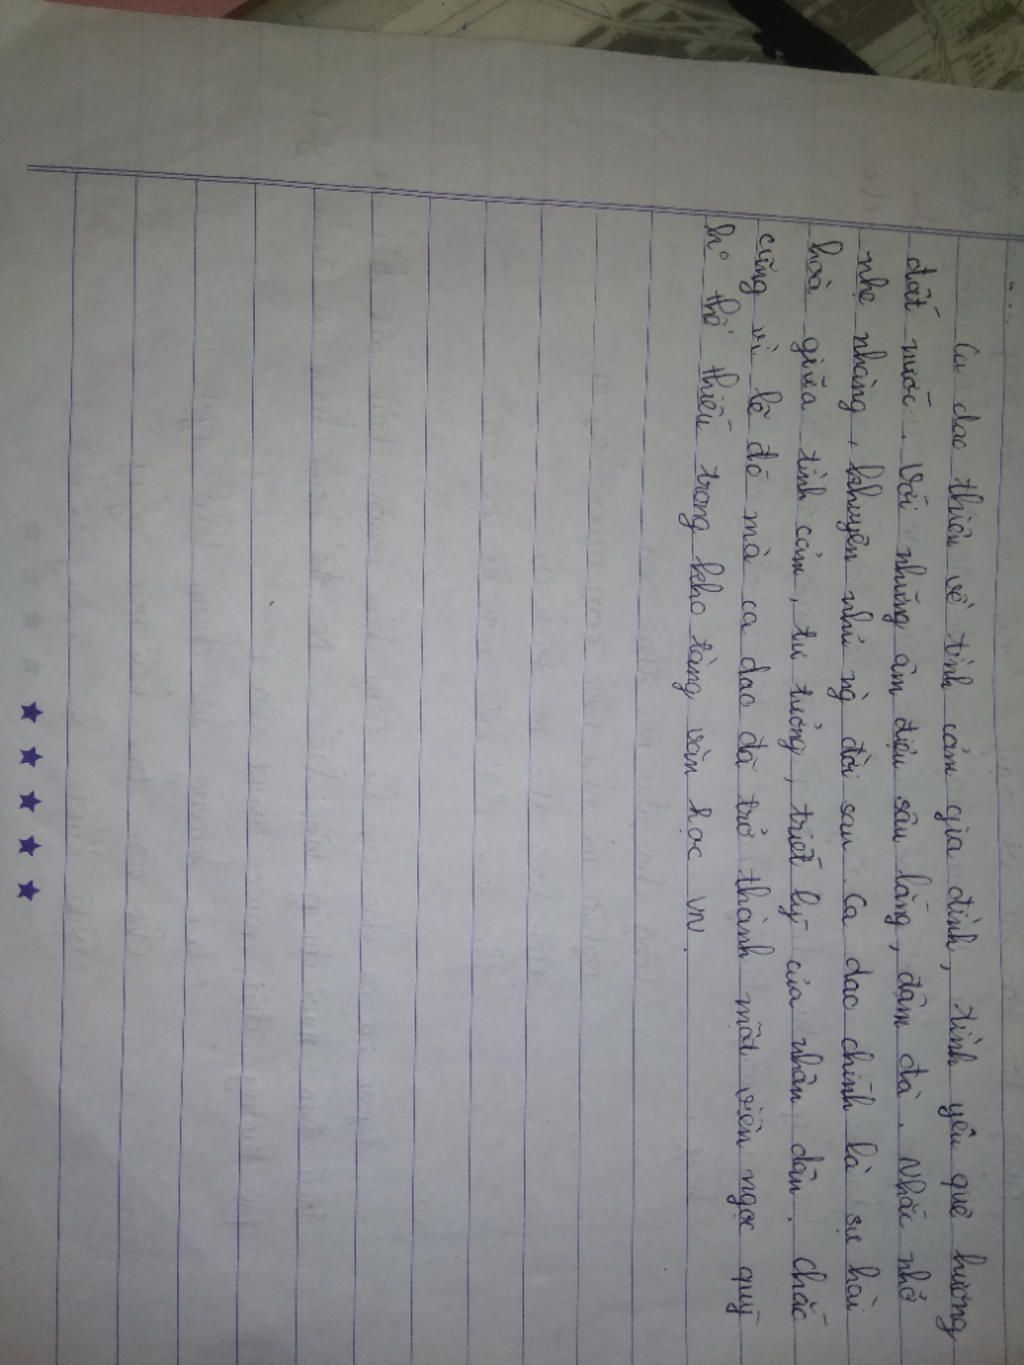 " ...
Ca dao thiên về tình cảm gia đình, tình yêu quê hương
đất nước. Với những âm điệu sâu lắng, đậm đà. Nhắc nhở
nhẹ nhàng, khuyên nhủ ng đời sau. Ca dao chính là sự hài
hoà giữa tình cảm, tư tưởng, triết lý của nhân dân. Chắc
cũng vì lẽ đó mà ca dao đã trở thành một viên ngọc quý
ko thể thiếu trong kho tàng văn học VN.